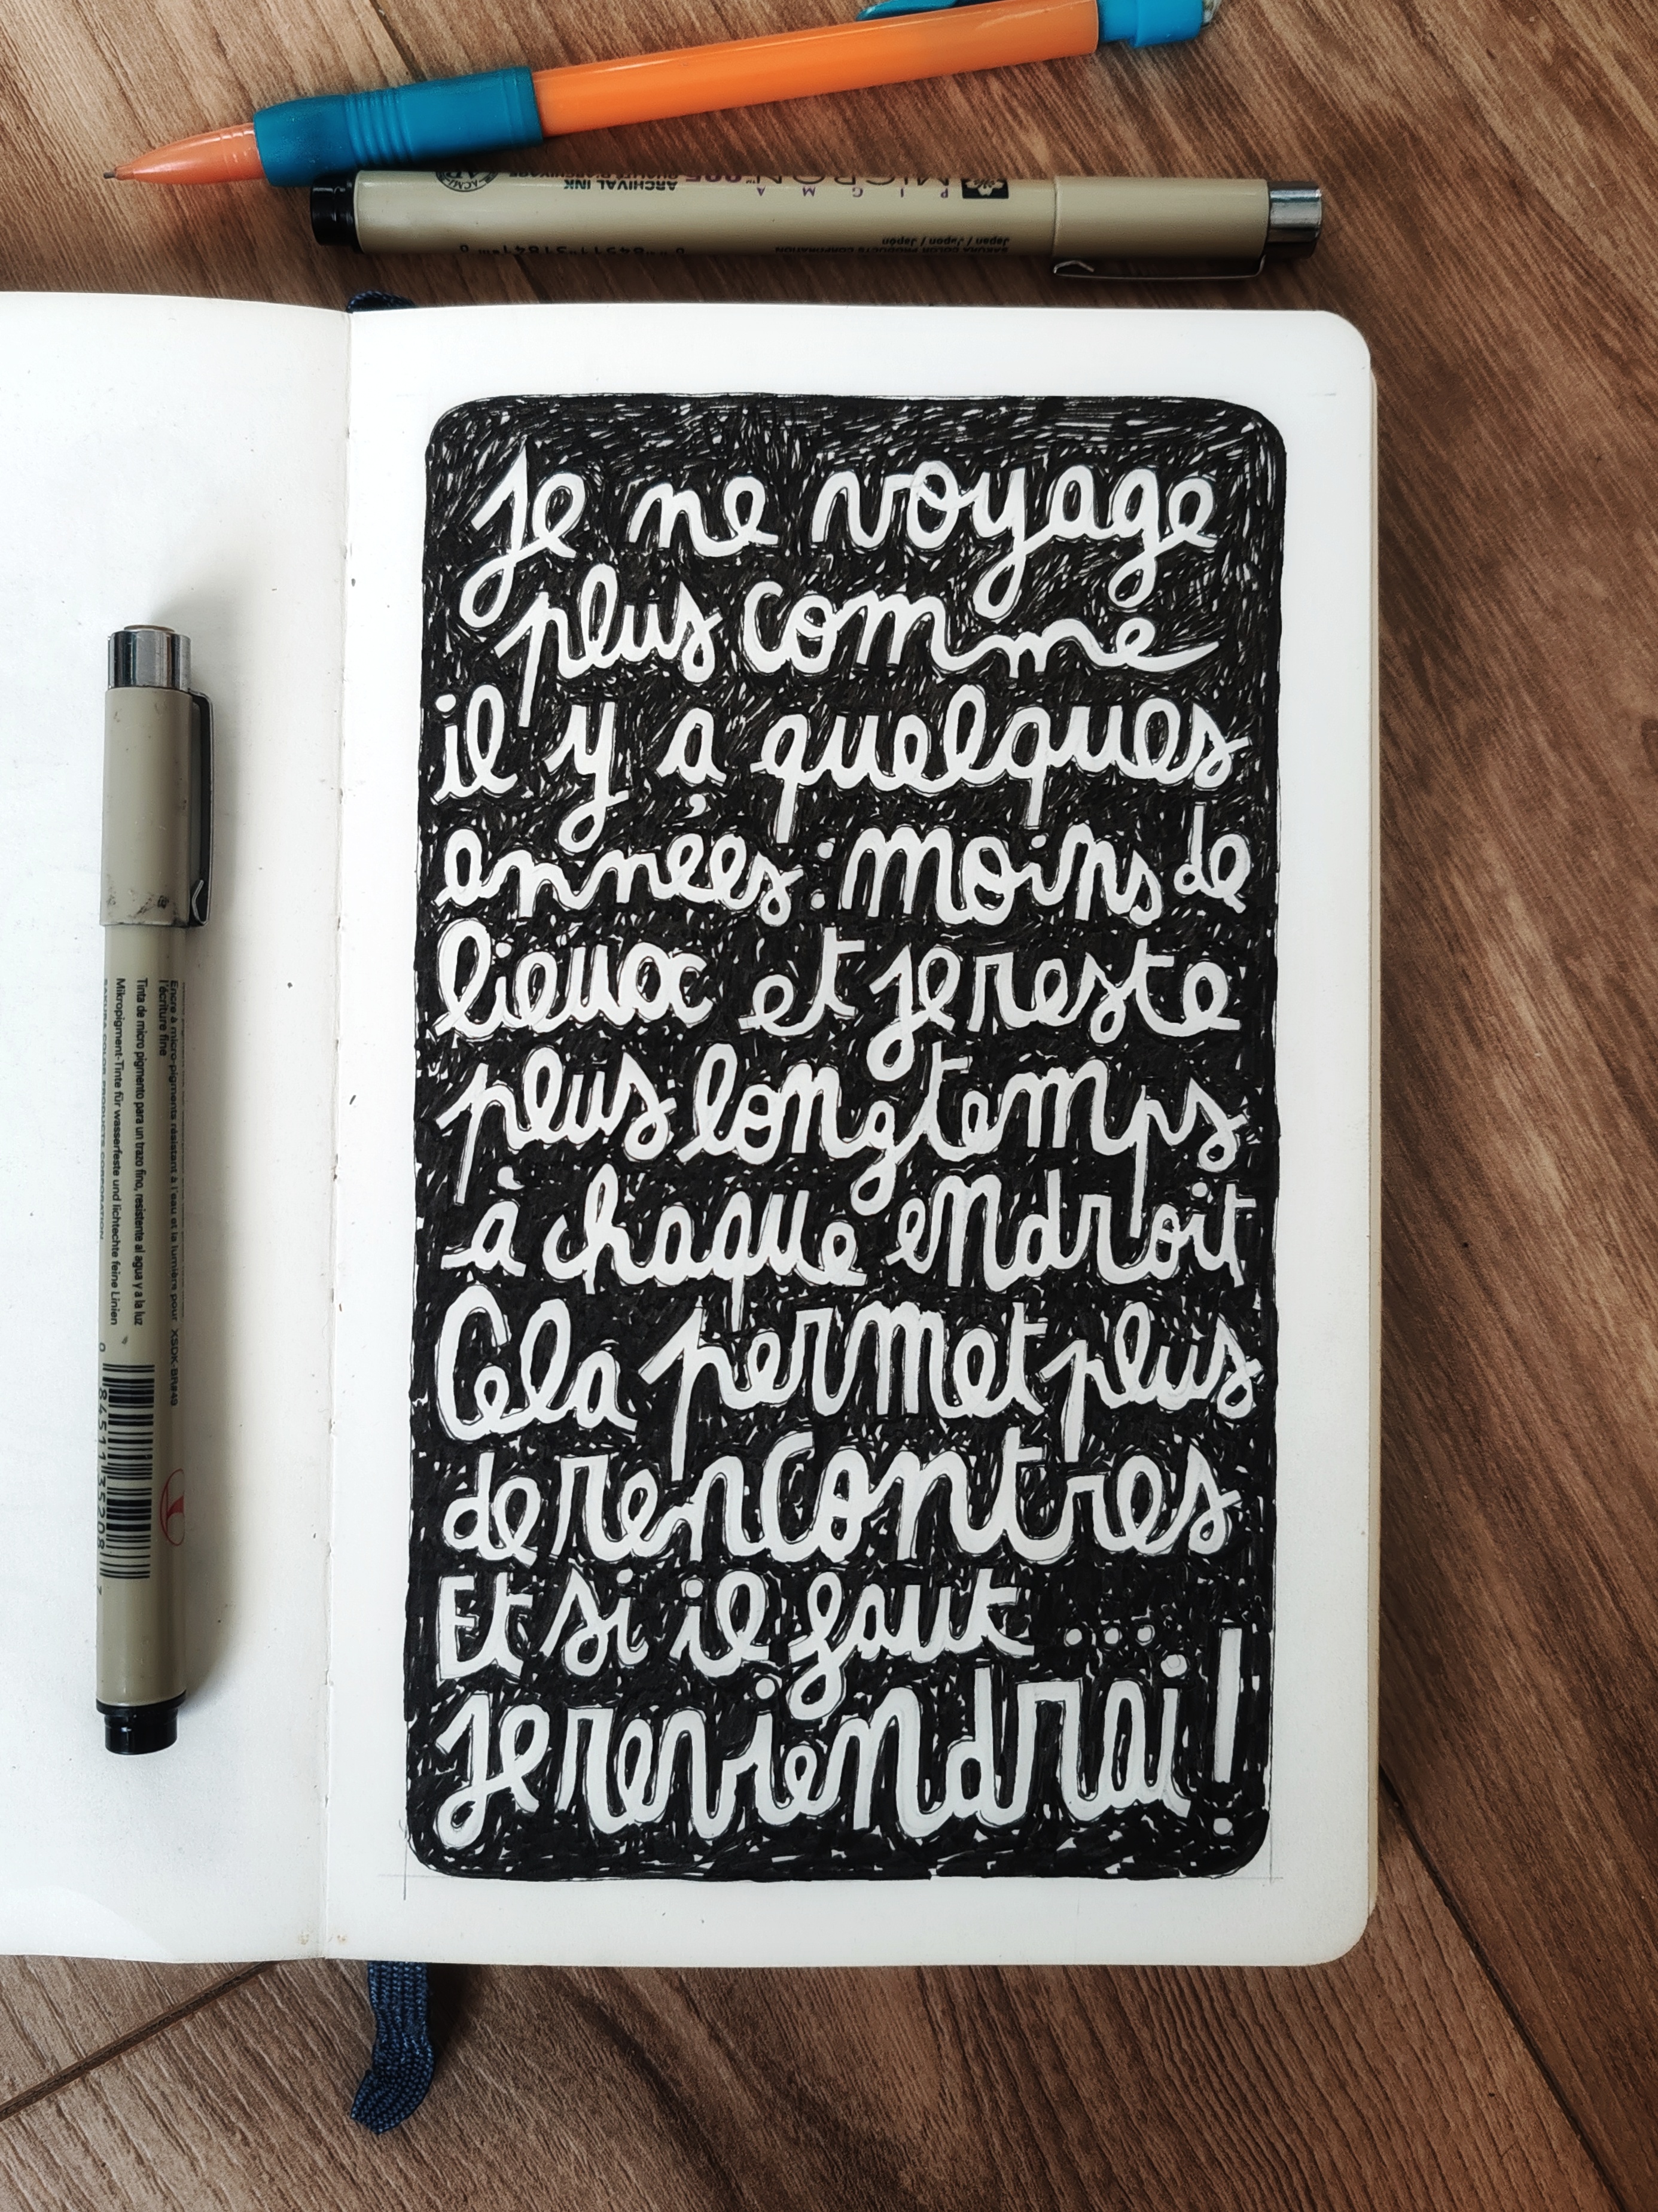 PIGMA MICRON™ 005
ARCHIVAL INK
Japan / Japon / Japón
Je ne voyage
plus comme
il y a quelques
ennées : moins de
lieux et je reste
plus longtemps
à chaque endroit
Cela permet plus
de rencontres
Et si il faut ...
Je reviendrai !
Encre à micro-pigments résistant à l'eau et la lumière pour XSDK-BR#49
l'écriture fine
Tinta de micro pigmento para un trazo fino, resistente al agua y a la luz
Mikropigment-Tinte für wasserfeste und lichtechte feine Linien
SAKURA COLOR PRODUCTS CORPORATION
0 84511 35208 7